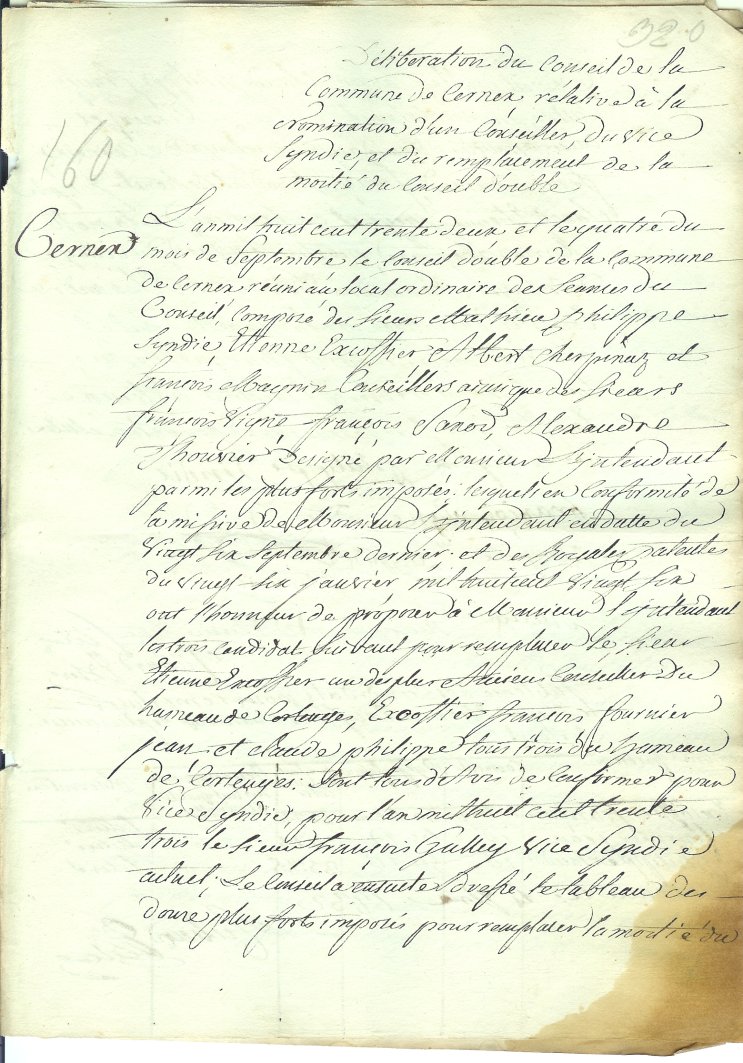 320
Déliberation du Conseil de la
Commune de Cernex, rélative à la
nomination d'un Conseiller, du Vice
Syndic, et du remplacement de la
moitié du Conseil double
160
Cernex
L'an mil huit cent trente deux et le quatre du
mois de Septembre le Conseil double de la Commune
de Cernex réuni au local ordinaire des Seances du
Conseil, composé des sieurs Mathieu Philippe
Syndic, Etienne Excoffier Albert Cherpinaz et
françois Magnin Conseillers ainsi que des sieurs
françois Vigne françois Alexandre
Thouvier Designé par Monsieur L'jntendant
parmi les plus forts imposés; lesquels en Conformité de
la missive de Monsieur L'jntendant en datte du
Vingt six Septembre dernier et des Royales patentes
du vingt six janvier mil huit cent vingt six
ont l'honneur de proposer à Monsieur l'jntendant
les trois candidat suivant pour remplacer le sieur
Etienne Excoffier un des plus Anciens Conseiller du
hameau de Cortenges, Excoffier françois fournier
jean et claude philippe tous trois du hameau
de Cortenges; sont tous d'Avis de Confirmer pour
Vice Syndic, pour l'an mil huit cent trente
trois le sieur françois Gulley Vice Syndic
actuel; Le Conseil a ensuite dressé le tableau des
douze plus forts imposés pour remplacer la moitié du